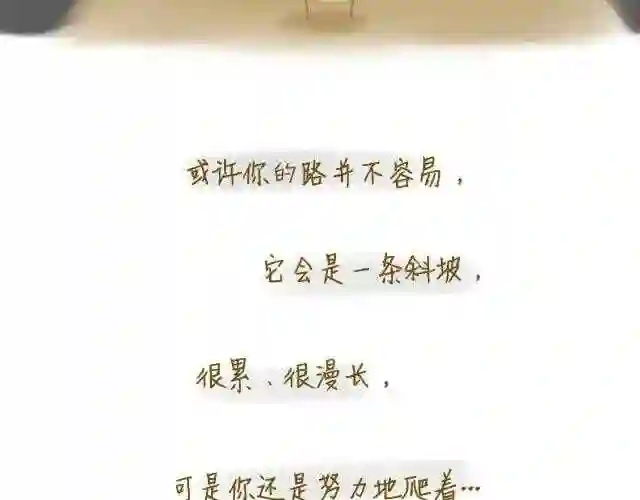 或许你的路并不容易，
它会是一条斜坡，
很累、很漫长，
可是你还是努力地爬着…